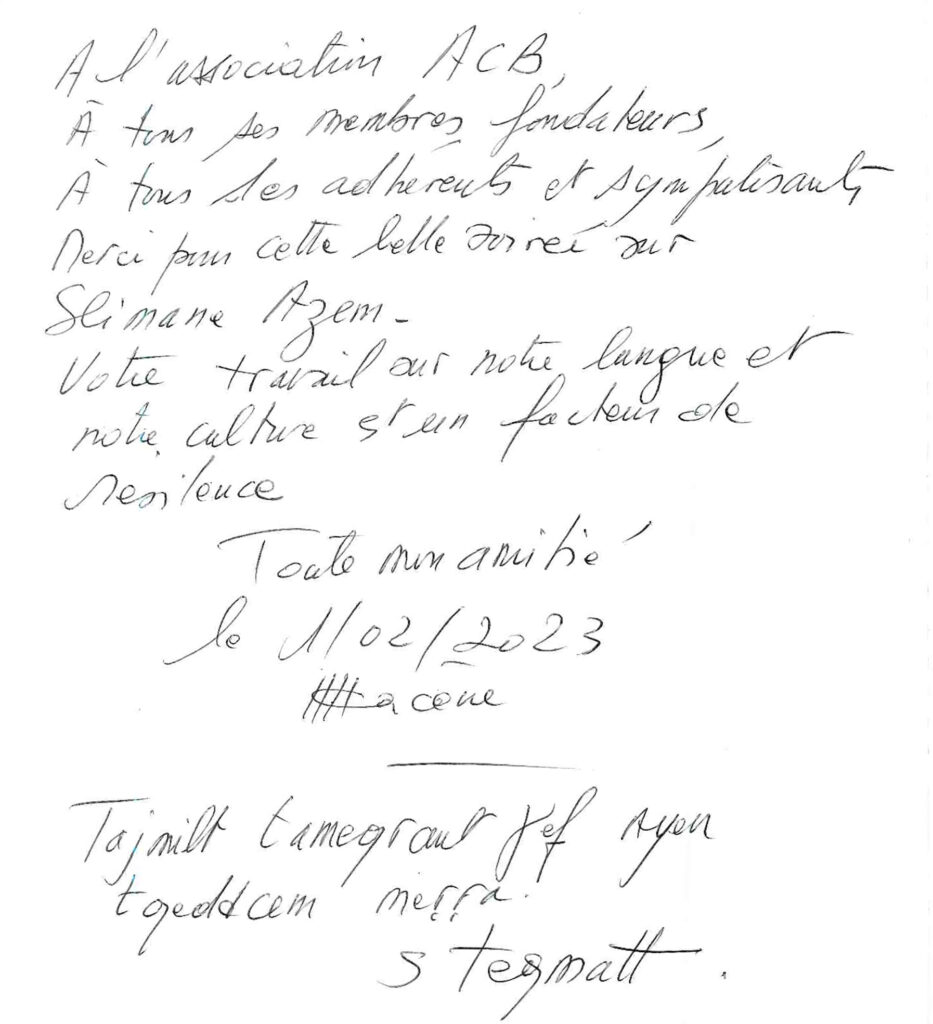 A l'association ACB,
À tous ses membres fondateurs,
À tous ses adhérents et sympatisants,
Merci pour cette belle soirée sur
Slimane Azem -
Votre travail sur notre langue et
notre culture est un facteur de
resilence
Toute mon amitié
le 1/02/2023
Hacene
Tajmilt tameqrant ɣef ayen
tqeddcem meṛṛa.
s tegmatt.